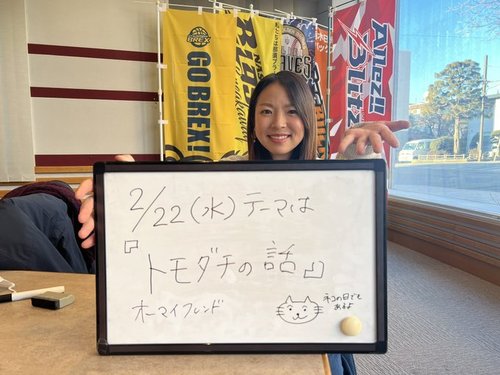 GO BREX!
BREX
Allez!!
Blitz
2/22(水)テーマは
『トモダチの話』
オーマイフレンド
ネコの日でも
あるよ